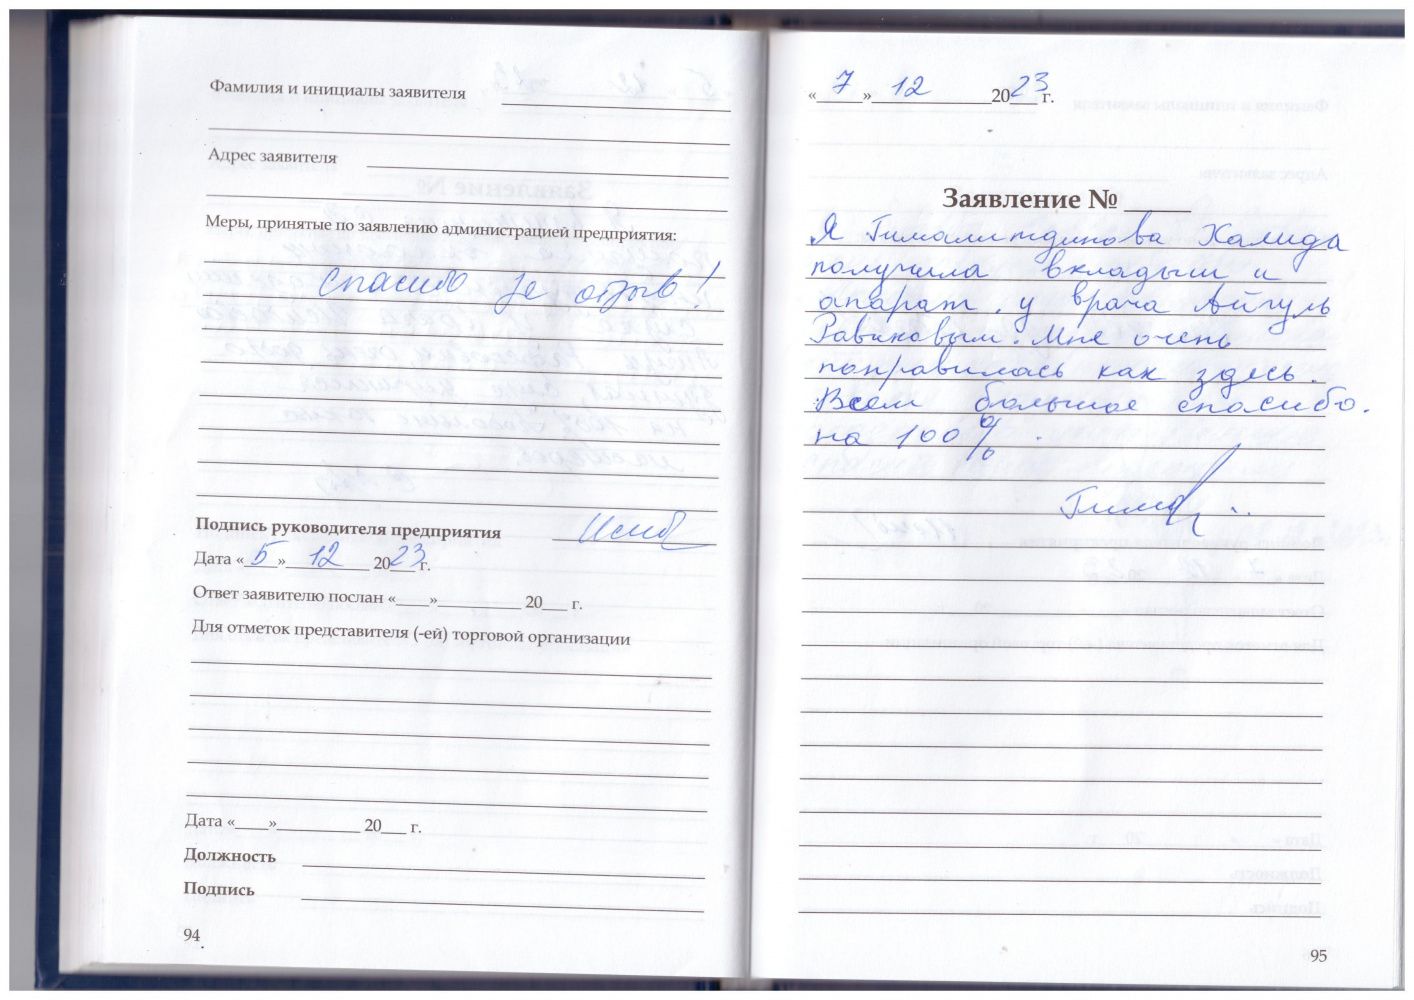 Фамилия и инициалы заявителя
Адрес заявителя
Меры, принятые по заявлению администрацией предприятия:
спасибо за отзыв!
Подпись руководителя предприятия
Дата «5» 12 2023 г.
Ответ заявителю послан «____»__________ 20___ г.
Для отметок представителя (-ей) торговой организации
Дата «____»__________ 20___ г.
Должность
Подпись
94
«7» 12 2023 г.
Заявление № _____
Я Гималитдинова Халида
получила вкладыш и
апарат. у врача Айгуль
Равиковым. Мне очень
понравилась как здесь.
Всем большое спасибо.
на 100%.
95